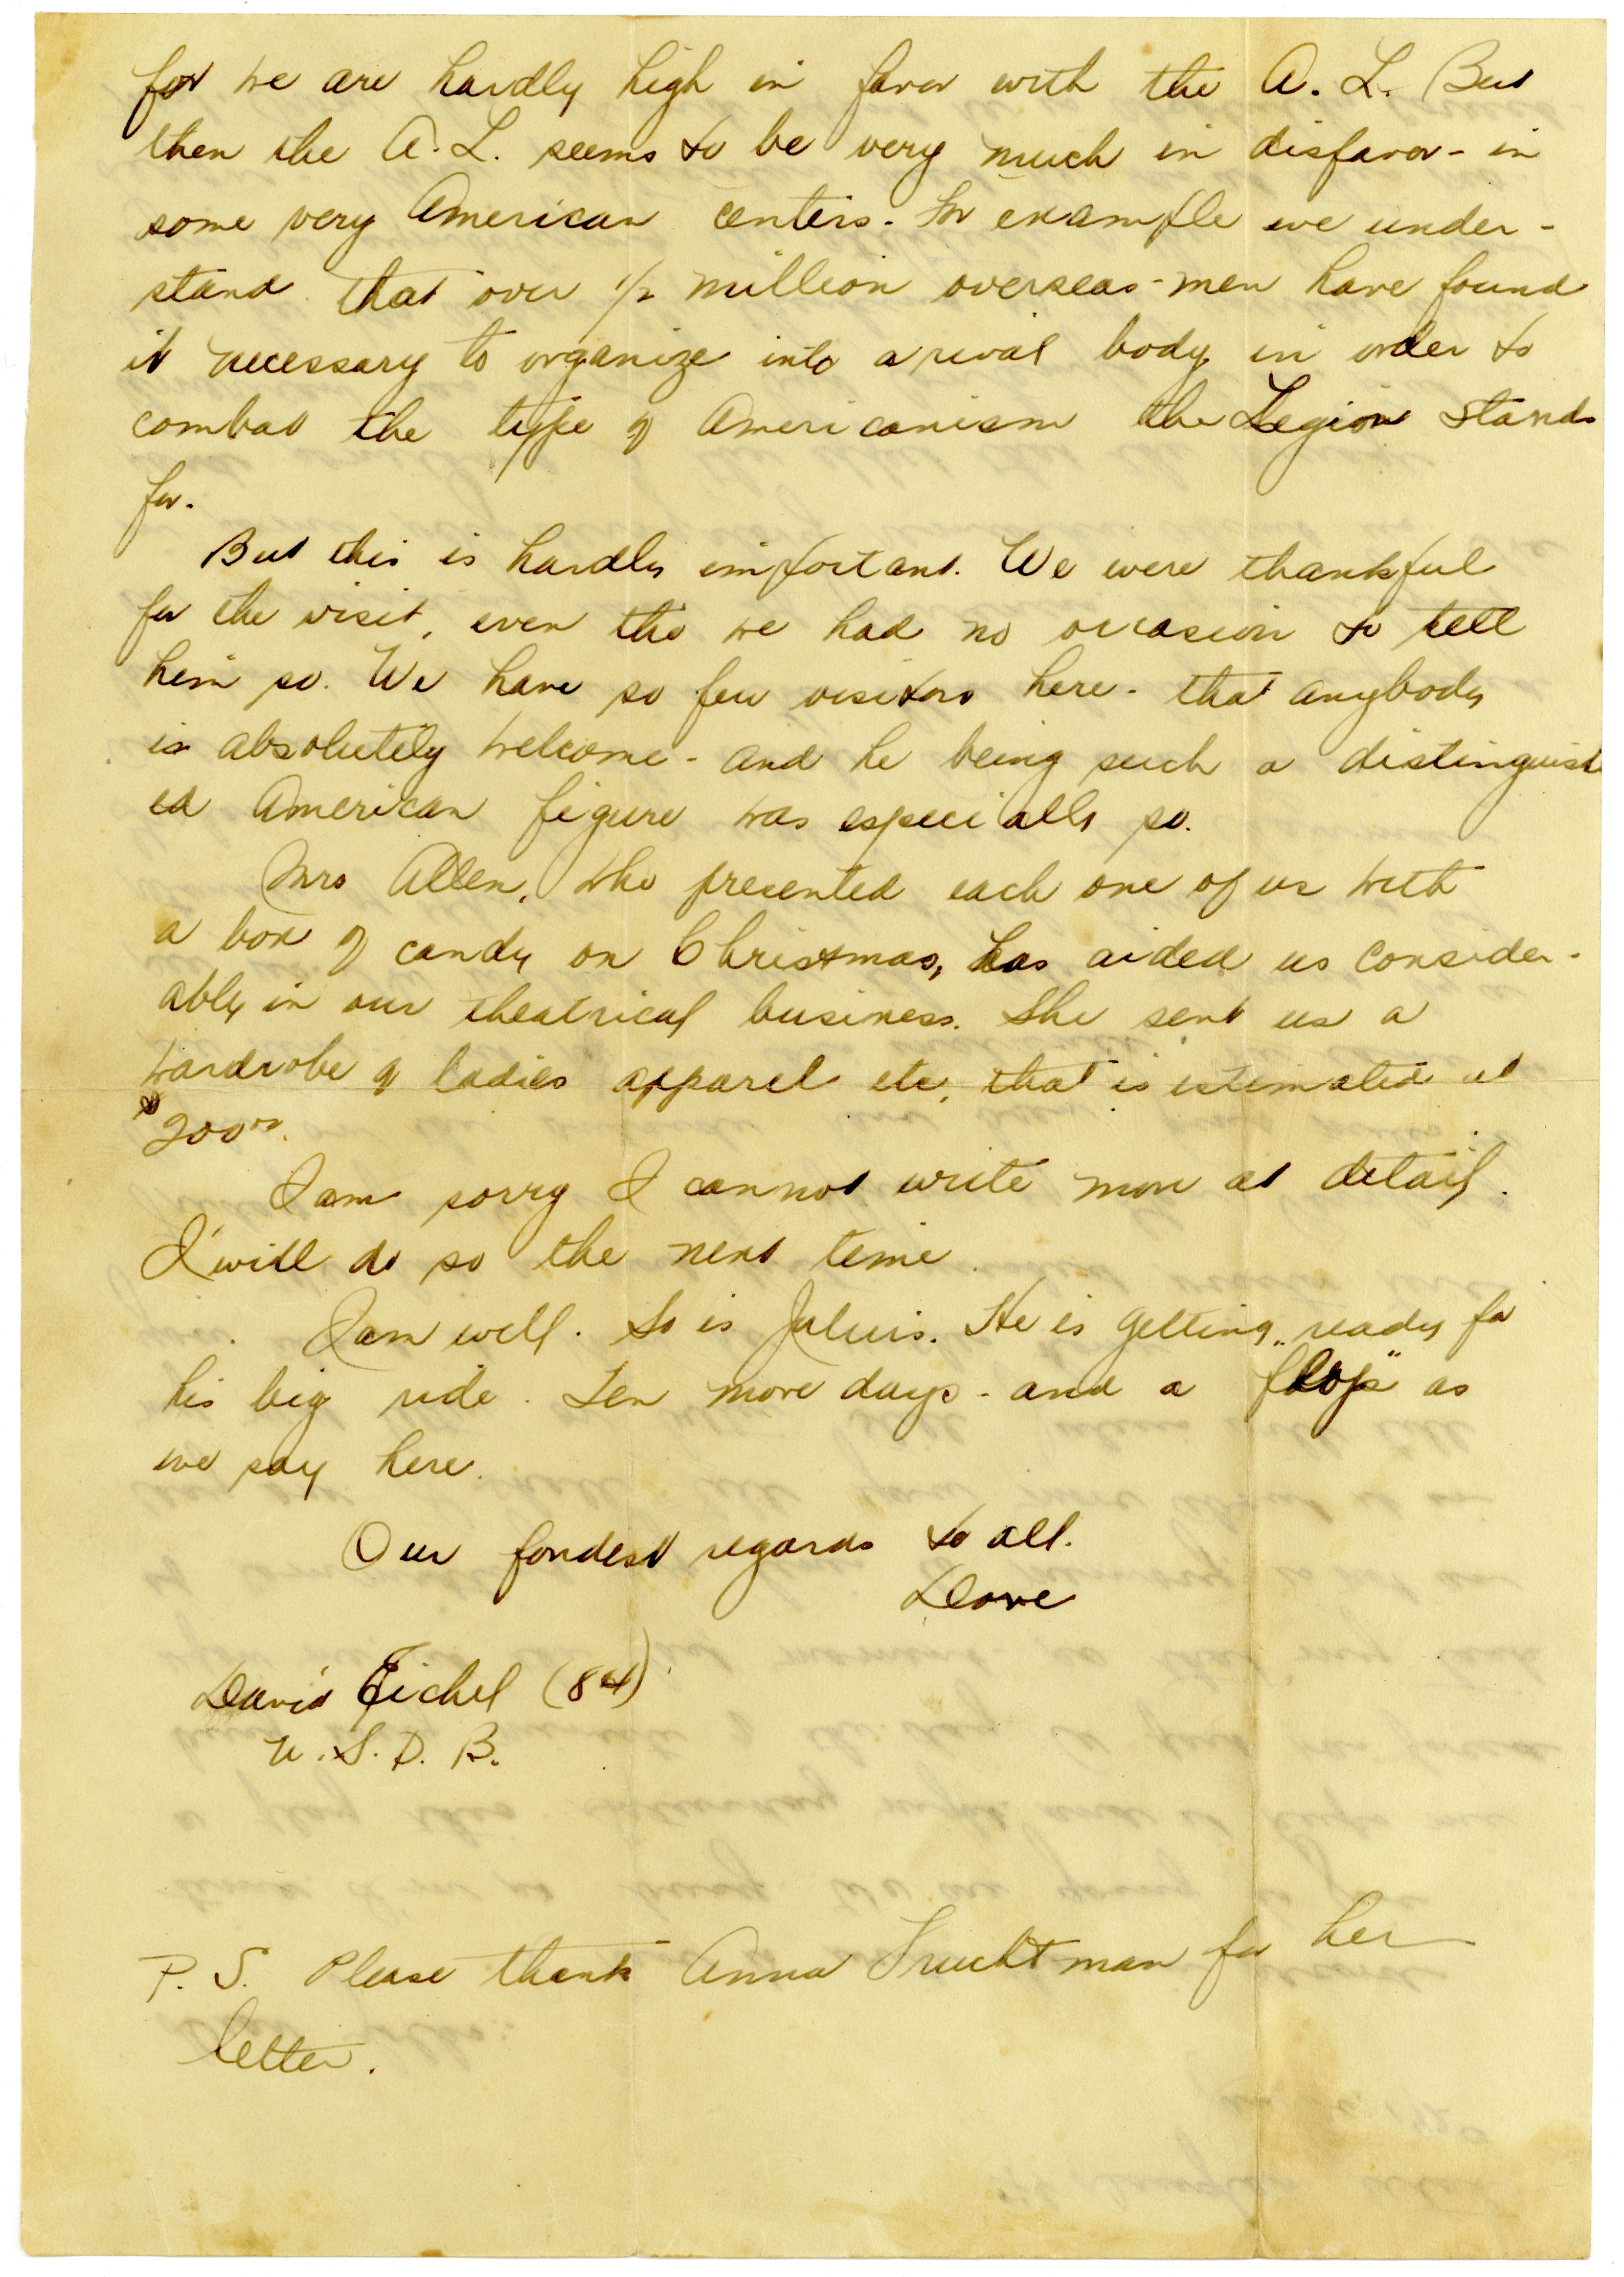 for we are hardly high in favor with the A. L. But
then the A. L. seems to be very much in disfavor - in
some very American centers. For example we under-
stand that over 1/2 million overseas-men have found
it necessary to organize into a rival body in order to
combat the type of Americanism the Legion stands
for.
But this is hardly important. We were thankful
for the visit, even tho we had no occasion to tell
him so. We have so few visitors here - that anybody
is absolutely welcome - and he being such a distinguish
ed American figure was especially so.
Mrs Allen, who presented each one of us with
a box of candy on Christmas, has aided us consider-
ably in our theatrical business. She sent us a
wardrobe of ladies apparel etc, that is estimated at
$200.00.
I am sorry I cannot write more at detail.
I will do so the next time.
I am well. So is Julius. He is getting ready for
his big ride. Ten more days - and a "flop" as
we say here.
Our fondest regards to all.
Dave
David Eichel (84)
U. S. D. B.
P. S. Please thank Anna Fruchtman for her
letter.